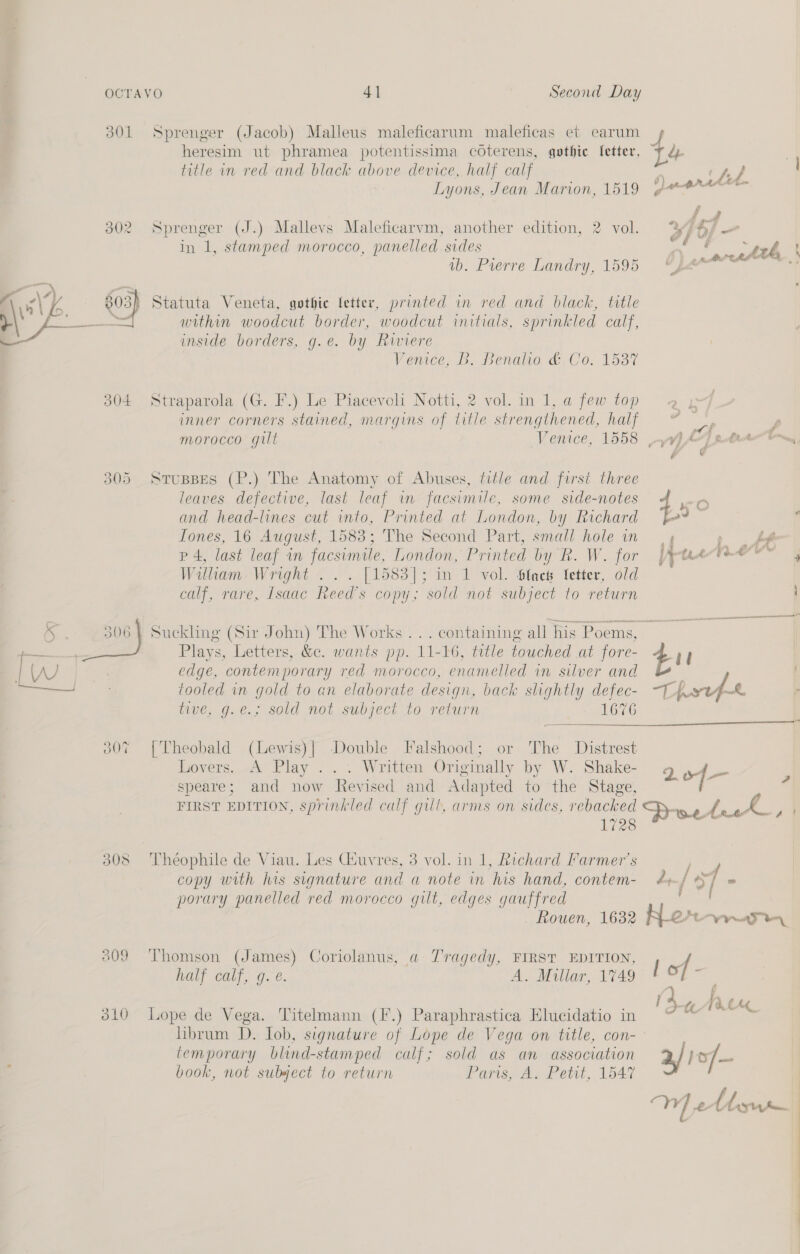 OCTAVO 41 Second Day
301 Sprenger (Jacob) Malleus maleficarum maleficas et earum
heresim ut phramea potentissima cōterens, gothic letter,
title in red and black above device, half calf
Lyons, Jean Marion, 1519
302 Sprenger (J.) Mallevs Maleficarvm, another edition, 2 vol.
in 1, stamped morocco, panelled sides
ib. Pierre Landry, 1595
303 Statuta Veneta, gothic letter, printed in red and black, title
within woodcut border, woodcut initials, sprinkled calf,
inside borders, g. e. by Riviere
Venice, B. Benalio & Co. 1537
304 Straparola (G. F.) Le Piacevoli Notti, 2 vol. in 1, a few top
inner corners stained, margins of title strengthened, half
morocco gilt Venice, 1558
305 STUBBES (P.) The Anatomy of Abuses, title and first three
leaves defective, last leaf in facsimile, some side-notes
and head-lines cut into, Printed at London, by Richard
Iones, 16 August, 1583; The Second Part, small hole in
P 4, last leaf in facsimile, London, Printed by R. W. for
William Wright . . . [1583]; in 1 vol. black letter, old
calf, rare, Isaac Reed's copy; sold not subject to return
306 Suckling (Sir John) The Works . . . containing all his Poems,
Plays, Letters, &c. wants pp. 11-16, title touched at fore-
edge, contemporary red morocco, enamelled in silver and
tooled in gold to an elaborate design, back slightly defec-
tive, g. e.; sold not subject to return 1676
Thorpe
307 [Theobald (Lewis)] Double Falshood; or The Distrest
Lovers. A Play . . . Written Originally by W. Shake-
speare; and now Revised and Adapted to the Stage,
FIRST EDITION, sprinkled calf gilt, arms on sides, rebacked
1728
308 Théophile de Viau. Les Œuvres, 3 vol. in 1, Richard Farmer's
copy with his signature and a note in his hand, contem-
porary panelled red morocco gilt, edges gauffred
Rouen, 1632
309 Thomson (James) Coriolanus, a Tragedy, FIRST EDITION,
half calf, g. e. A. Millar, 1749
310 Lope de Vega. Titelmann (F.) Paraphrastica Elucidatio in
librum D. Iob, signature of Lope de Vega on title, con-
temporary blind-stamped calf; sold as an association
book, not subject to return Paris, A. Petit, 1547